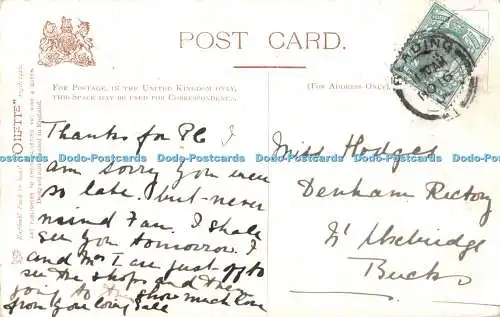 POST CARD.
FOR POSTAGE, IN THE UNITED KINGDOM ONLY,
THIS SPACE MAY BE USED FOR CORRESPONDENCE.
(FOR ADDRESS ONLY.)
READING
"OILETTE"
Thanks for PC I
am sorry you were
so late. but never
mind Fan. I shall
see you tomorrow. I
and Mrs T are just off to
see the shops and then
going to the show much love
from your loving
Miss Hodges
Denham Rectory
Nr Uxbridge
Bucks
Dodo-Postcards Dodo-Postcards Dodo-Postcards Dodo-Postcards Dodo-Postcards Dodo-Postcards